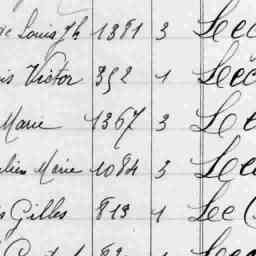 Louis Jh 1391 3 Lec
is Victor 392 1 Lec
Marie 1367 3 Le
lien Marie 1084 3 Lec
s Gilles 813 1 Le C